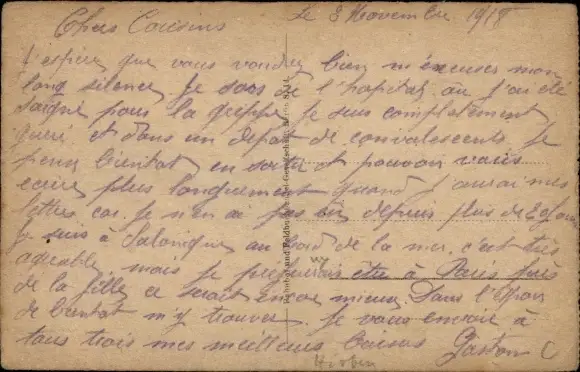 Le 8 Novembre 1918
Chers Cousins
J'espère que vous voudrez bien m'excuser mon
long silence. Je sors de l'hopital, ou j'ai été
soigné pour la grippe je suis completement
gueri et dans un depot de convalescents je
pense bientot en sortir et pouvoir vous
ecrire plus longuement quand j'aurai mes
lettres car je n'en ai pas eu depuis plus de
Je suis à Salonique au bord de la mer c'est très
agreable, mais je prefererais être à Paris près
de la fille ce serait encore mieux. Dans l'espoir
de bientot m'y trouver. Je vous envoie à
tous trois mes meilleurs baisers Gaston